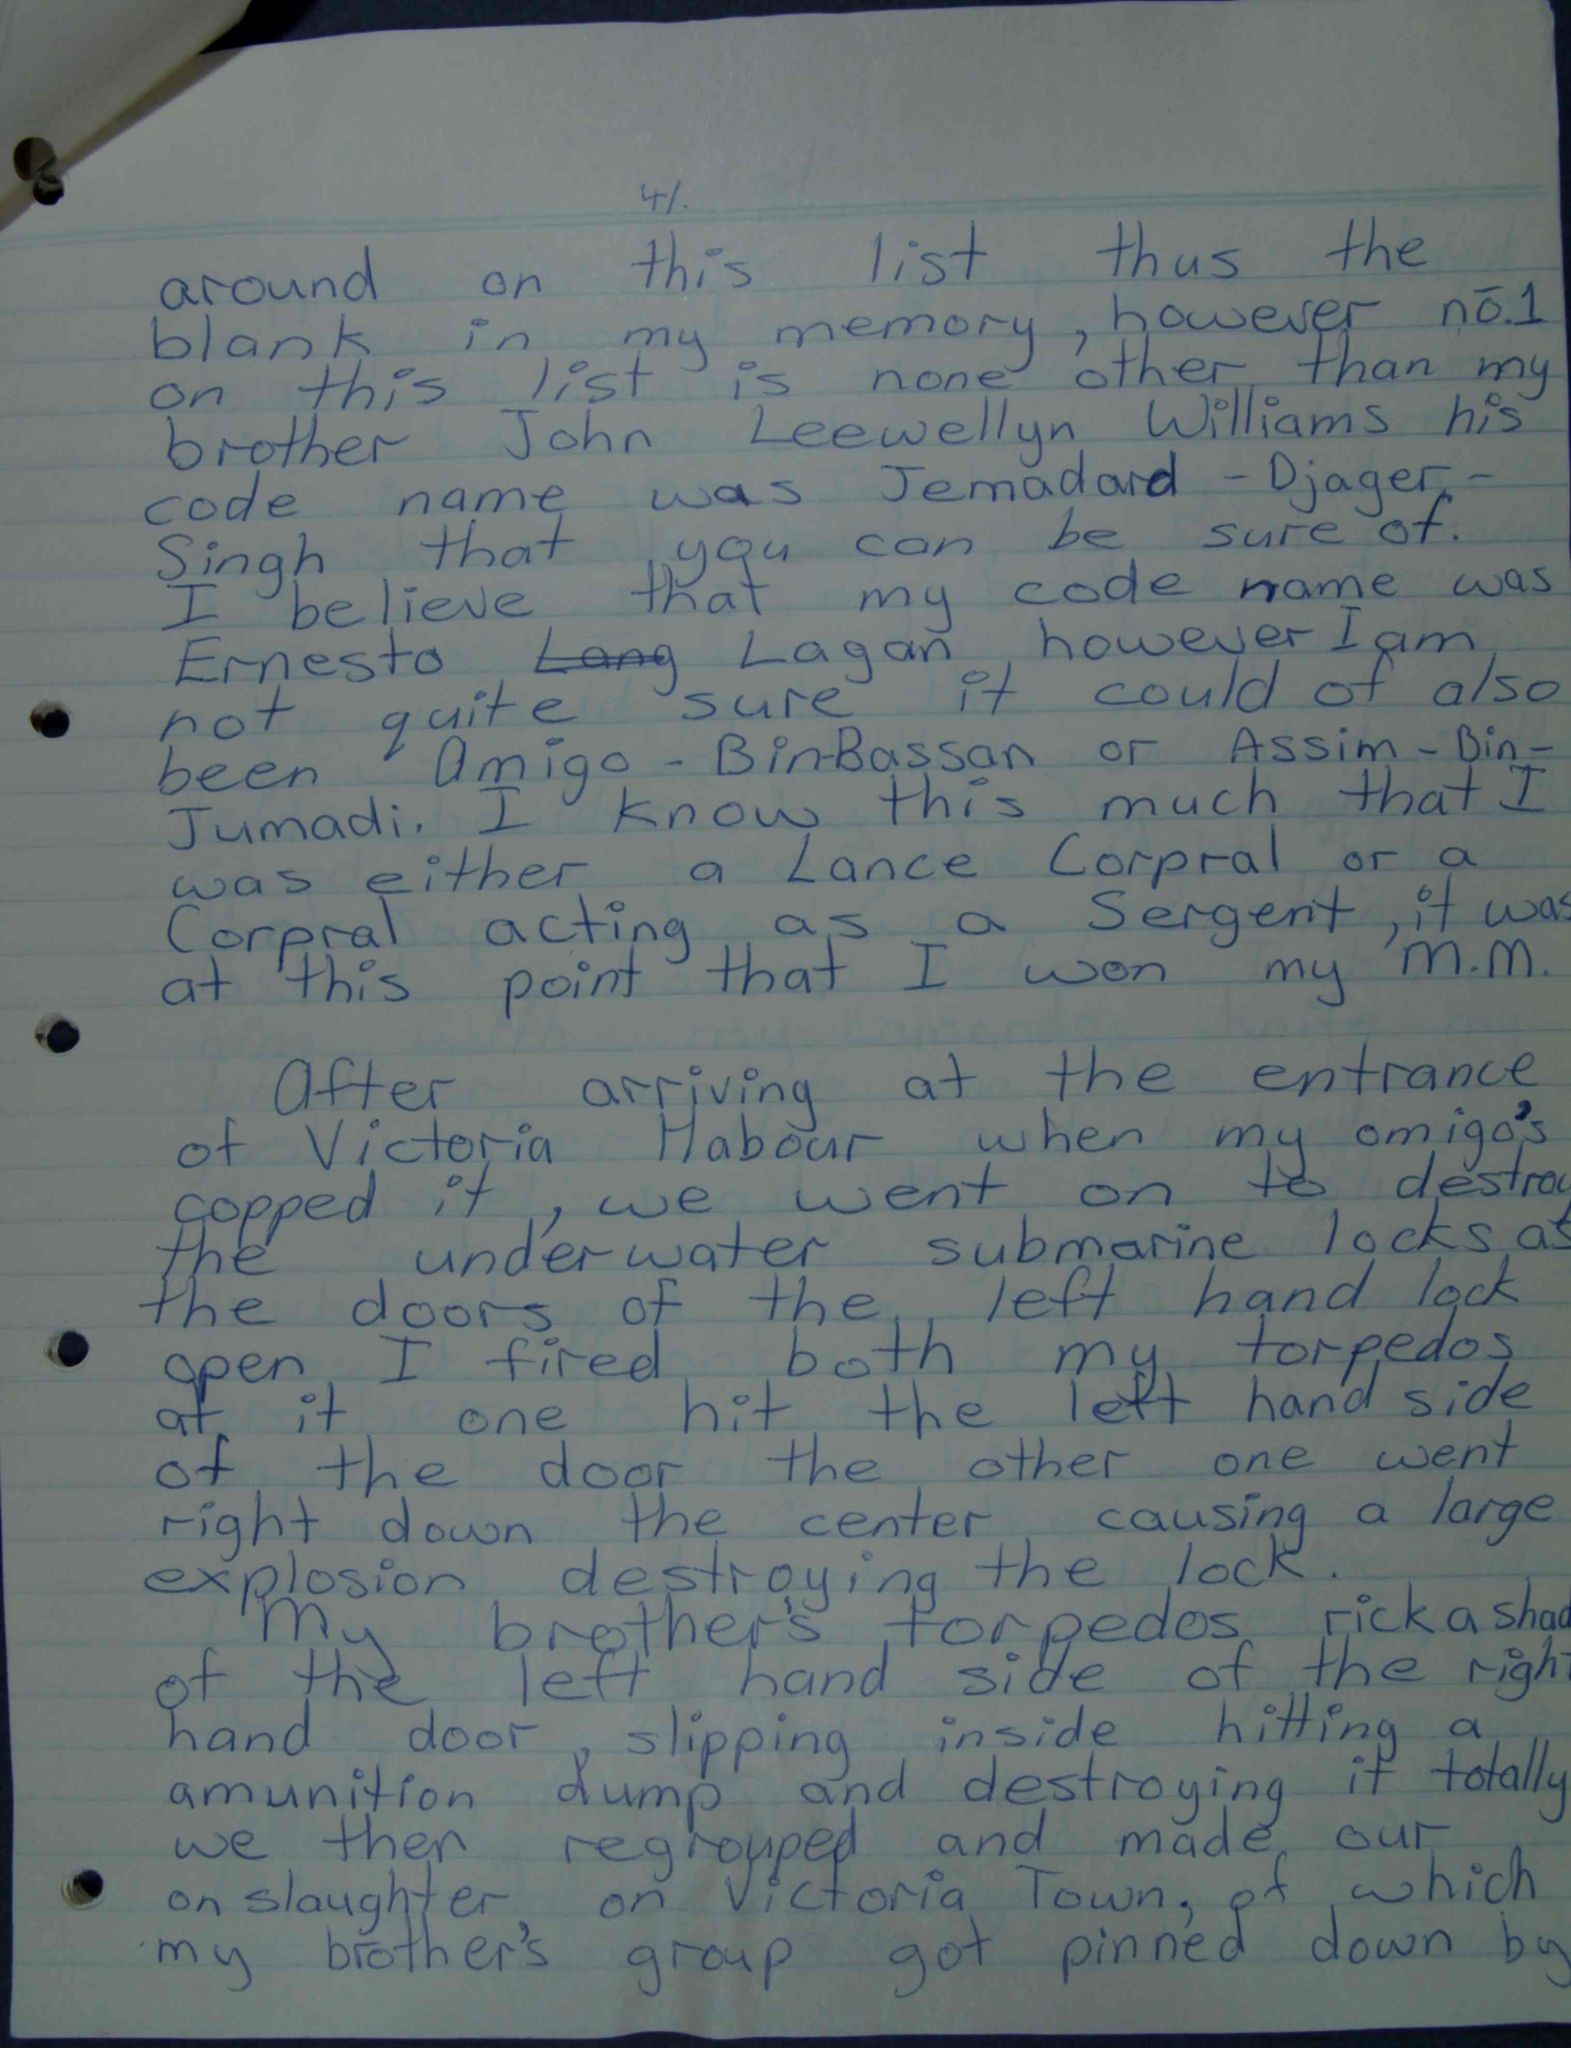 4/.
around on this list thus the
blank in my memory, however nō.1
on this list is none other than my
brother John Leewellyn Williams his
code name was Jemadard - Djager -
Singh that you can be sure of.
I believe that my code name was
Ernesto Lang Lagan, however I am
not quite sure it could of also
been Amigo - Bin-Bassan or Assim - Bin -
Jumadi. I know this much that I
was either a Lance Corpral or a
Corpral acting as a Sergent, it was
at this point that I won my M.M.
After arriving at the entrance
of Victoria Habour when my amigo's
copped it, we went on to destroy
the underwater submarine locks, as
the doors of the left hand lock
open I fired both my torpedos
at it one hit the left hand side
of the door the other one went
right down the center causing a large
explosion destroying the lock.
My brother's torpedos rickashad
of the left hand side of the right
hand door, slipping inside hitting a
amunition dump and destroying it totally
we then regrouped and made our
onslaughter on Victoria Town, of which
my brother's group got pinned down by